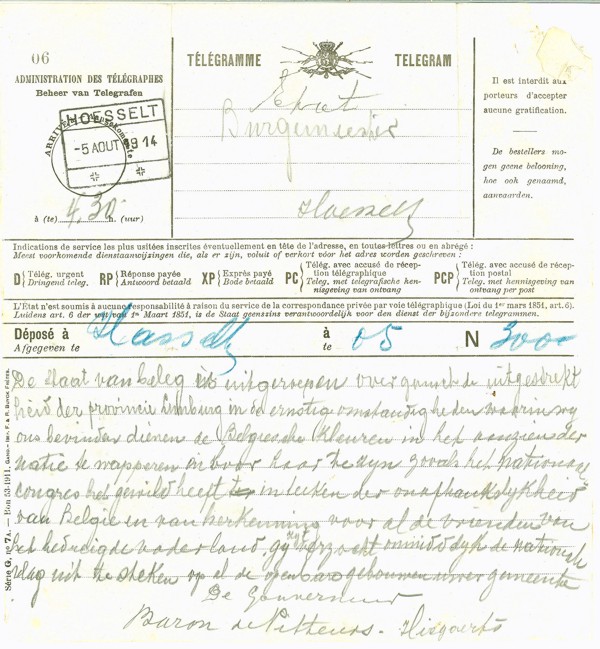 06
ADMINISTRATION DES TÉLÉGRAPHES
Beheer van Telegrafen
TÉLÉGRAMME
TELEGRAM
Il est interdit aux
porteurs d'accepter
aucune gratification.
De bestellers mo-
gen geene belooning,
hoe ook genaamd,
aanvaarden.
HOESSELT
-5 AOUT 1914
à (te) 4,30 h. (uur)
Burgemeester
Hoesselt
Indications de service les plus usitées inscrites éventuellement en tête de l'adresse, en toutes lettres ou en abrégé :
Meest voorkomende dienstaanwijzingen die, als er zijn, voluit of verkort voor het adres worden geschreven :
D Télég. urgent Dringend teleg.
RP Réponse payée Antwoord betaald
XP Exprès payé Bode betaald
PC Télég. avec accusé de récep-
tion télégraphique
Teleg. met telegrafische ken-
nisgeving van ontvang
PCP Télég. avec accusé de récep-
tion postal
Teleg. met kennisgeving van
ontvang per post
L'État n'est soumis à aucune responsabilité à raison du service de la correspondance privée par voie télégraphique (Loi du 1er mars 1851, art. 6).
Luidens art. 6 der wet van 1n Maart 1851, is de Staat geenszins verantwoordelijk voor den dienst der bijzondere telegrammen.
Déposé à Hasselt à 05 N 3000
Afgegeven te te
De staat van beleg is uitgeroepen over gansch de uitgestrekt
heid der provincie Limburg in de ernstige omstandigheden waarin wy
ons bevinden dienen de Belgiesche kleuren in het aanzien der
natie te wapperen en voor haar te zyn zooals het nationaal
congres het gewild heeft in teeken der onafhankelykheid
van Belgie en van herkenning voor al de vrienden van
het bedreigde vaderland, gy zyt verzocht onmiddelyk de nationale
vlag uit te steken op al de open bare gebouwen uwer gemeente
De Gouverneur
Baron de Pitteurs - Hiegaerts
Série G, no 7A. — Bon 53-1911.